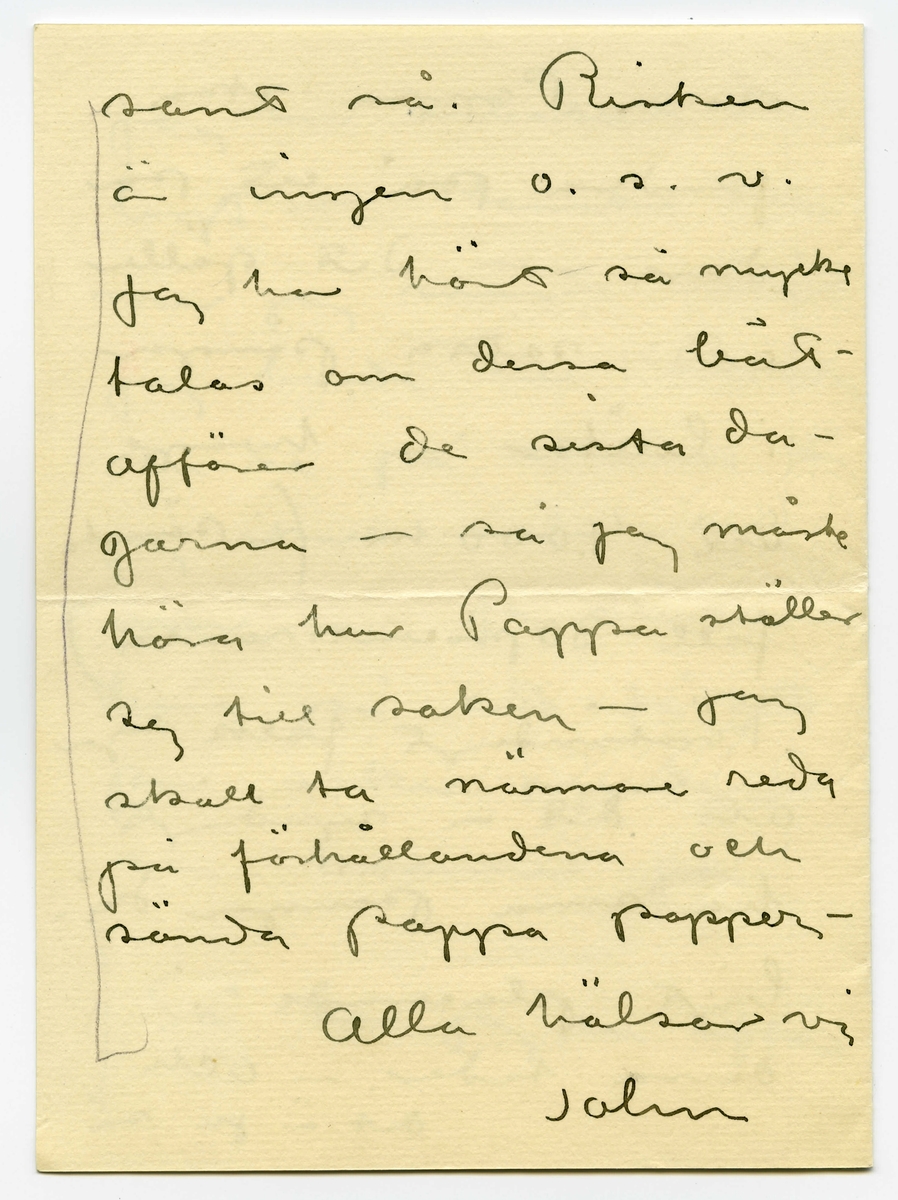 sant så. Risken
är ingen o. s. v.
Jag har hört så mycke
talas om dessa båt-
affärer de sista da-
garna — så jag måste
höra hur Pappa ställer
sig till saken — jag
skall ta närmare reda
på förhållandena och
sända Pappa papper,-
Alla hälsar vi,
John